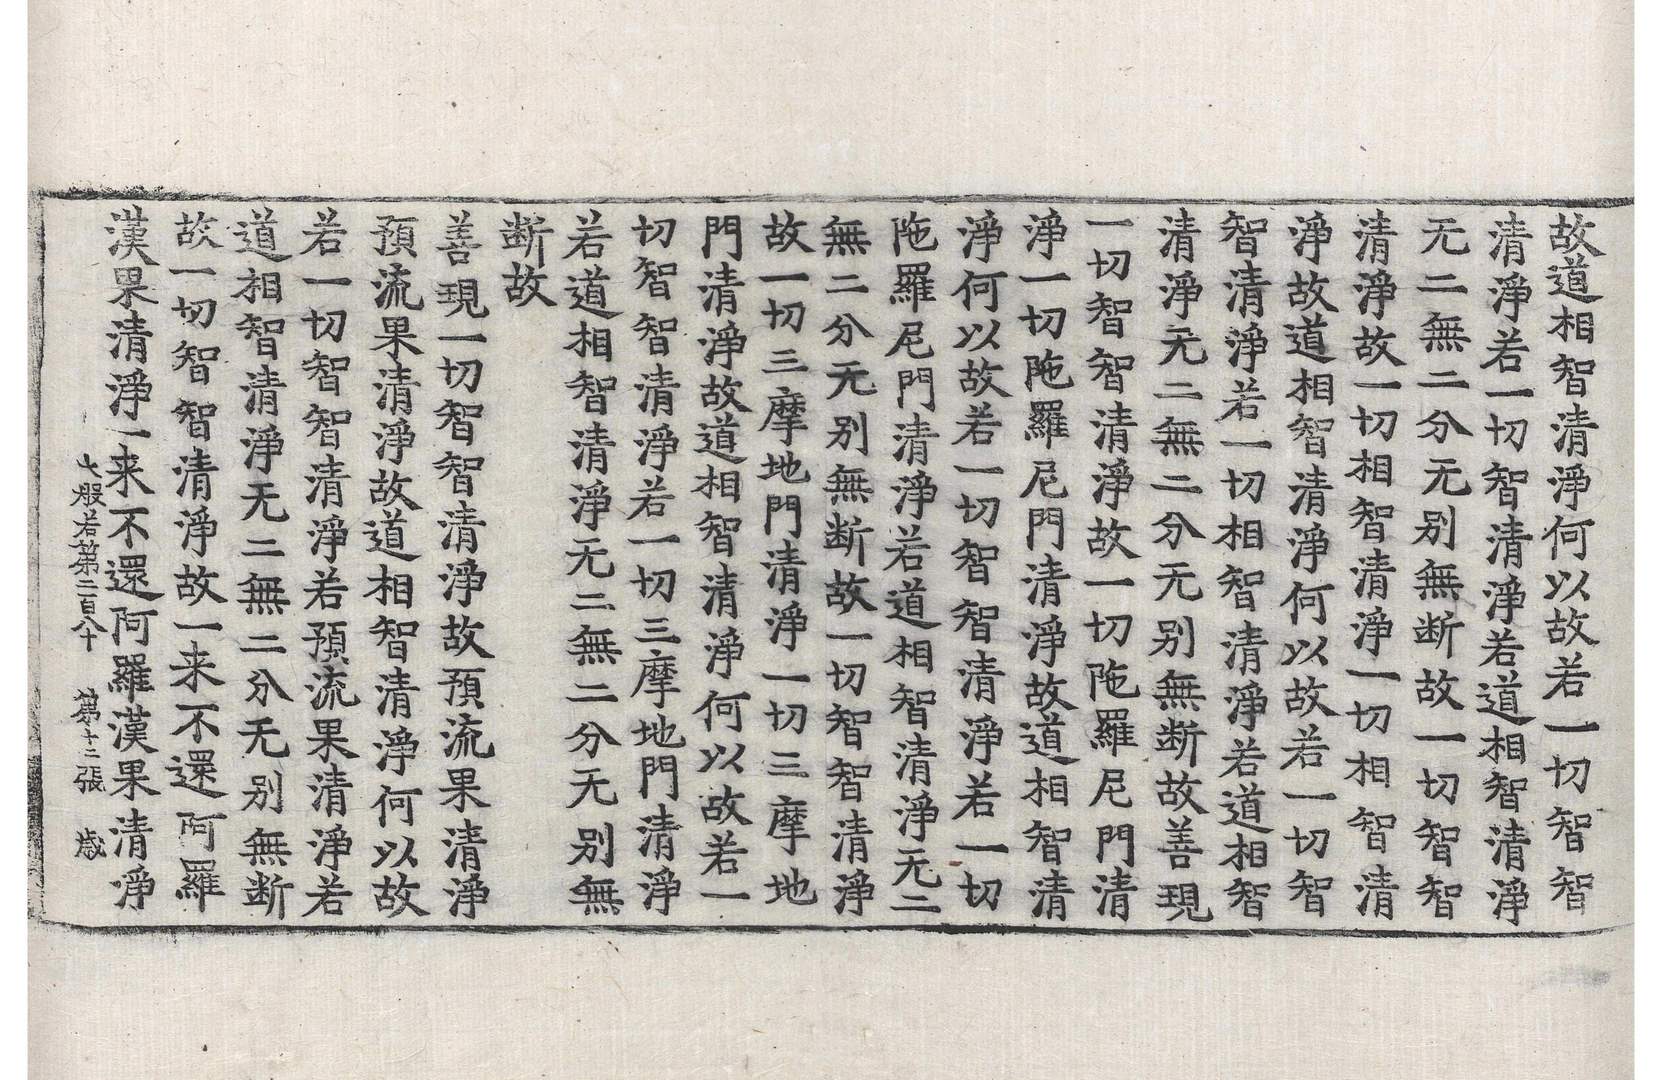 故道相智清淨何以故若一切智智
清淨若一切智清淨若道相智清淨
无二無二分无别無断故一切智智
清淨故一切相智清淨一切相智清
淨故道相智清淨何以故若一切智
智清淨若一切相智清淨若道相智
清淨无二無二分无别無断故善現
一切智智清淨故一切陁羅尼門清
淨一切陁羅尼門清淨故道相智清
淨何以故若一切智智清淨若一切
陁羅尼門清淨若道相智清淨无二
無二分无别無断故一切智智清淨
故一切三摩地門清淨一切三摩地
門清淨故道相智清淨何以故若一
切智智清淨若一切三摩地門清淨
若道相智清淨无二無二分无别無
断故
善現一切智智清淨故預流果清淨
預流果清淨故道相智清淨何以故
若一切智智清淨若預流果清淨若
道相智清淨无二無二分无别無断
故一切智智清淨故一来不還阿羅
漢果清淨一来不還阿羅漢果清淨
大般若第二百八十 第十二張 歳